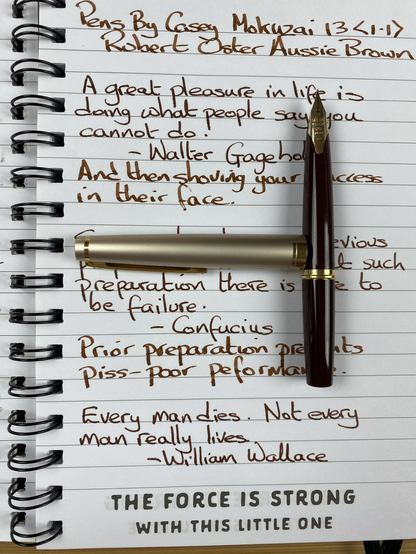 Pens By Casey Mokuzai 13 <1.1>
Robert Oster Aussie Brown
A great pleasure in life is
doing what people say you
cannot do.
- Walter Gageho
And then shoving your ccess
in their face.
evious
such
preparation there is e to
be failure.
- Confucius
Prior preparation pre nts
piss-poor peforman
Every man dies. Not every
man really lives.
- William Wallace
THE FORCE IS STRONG
WITH THIS LITTLE ONE